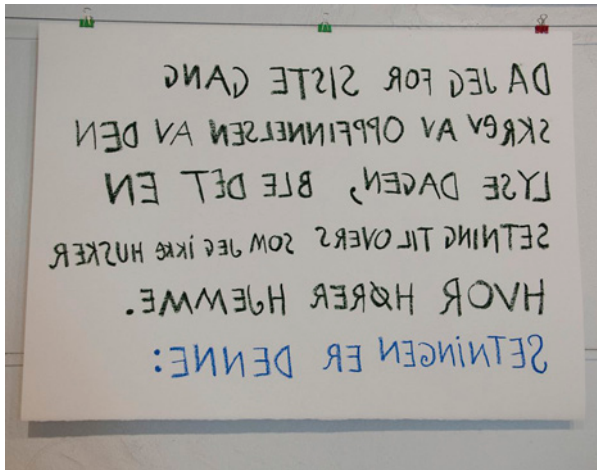 DA JEG FOR SISTE GANG
SKREV AV OPPFINNELSEN AV DEN
LYSE DAGEN, BLE DET EN
SETNING TIL OVERS SOM JEG IKKE HUSKER
HVOR HØRER HJEMME.
SETNINGEN ER DENNE: